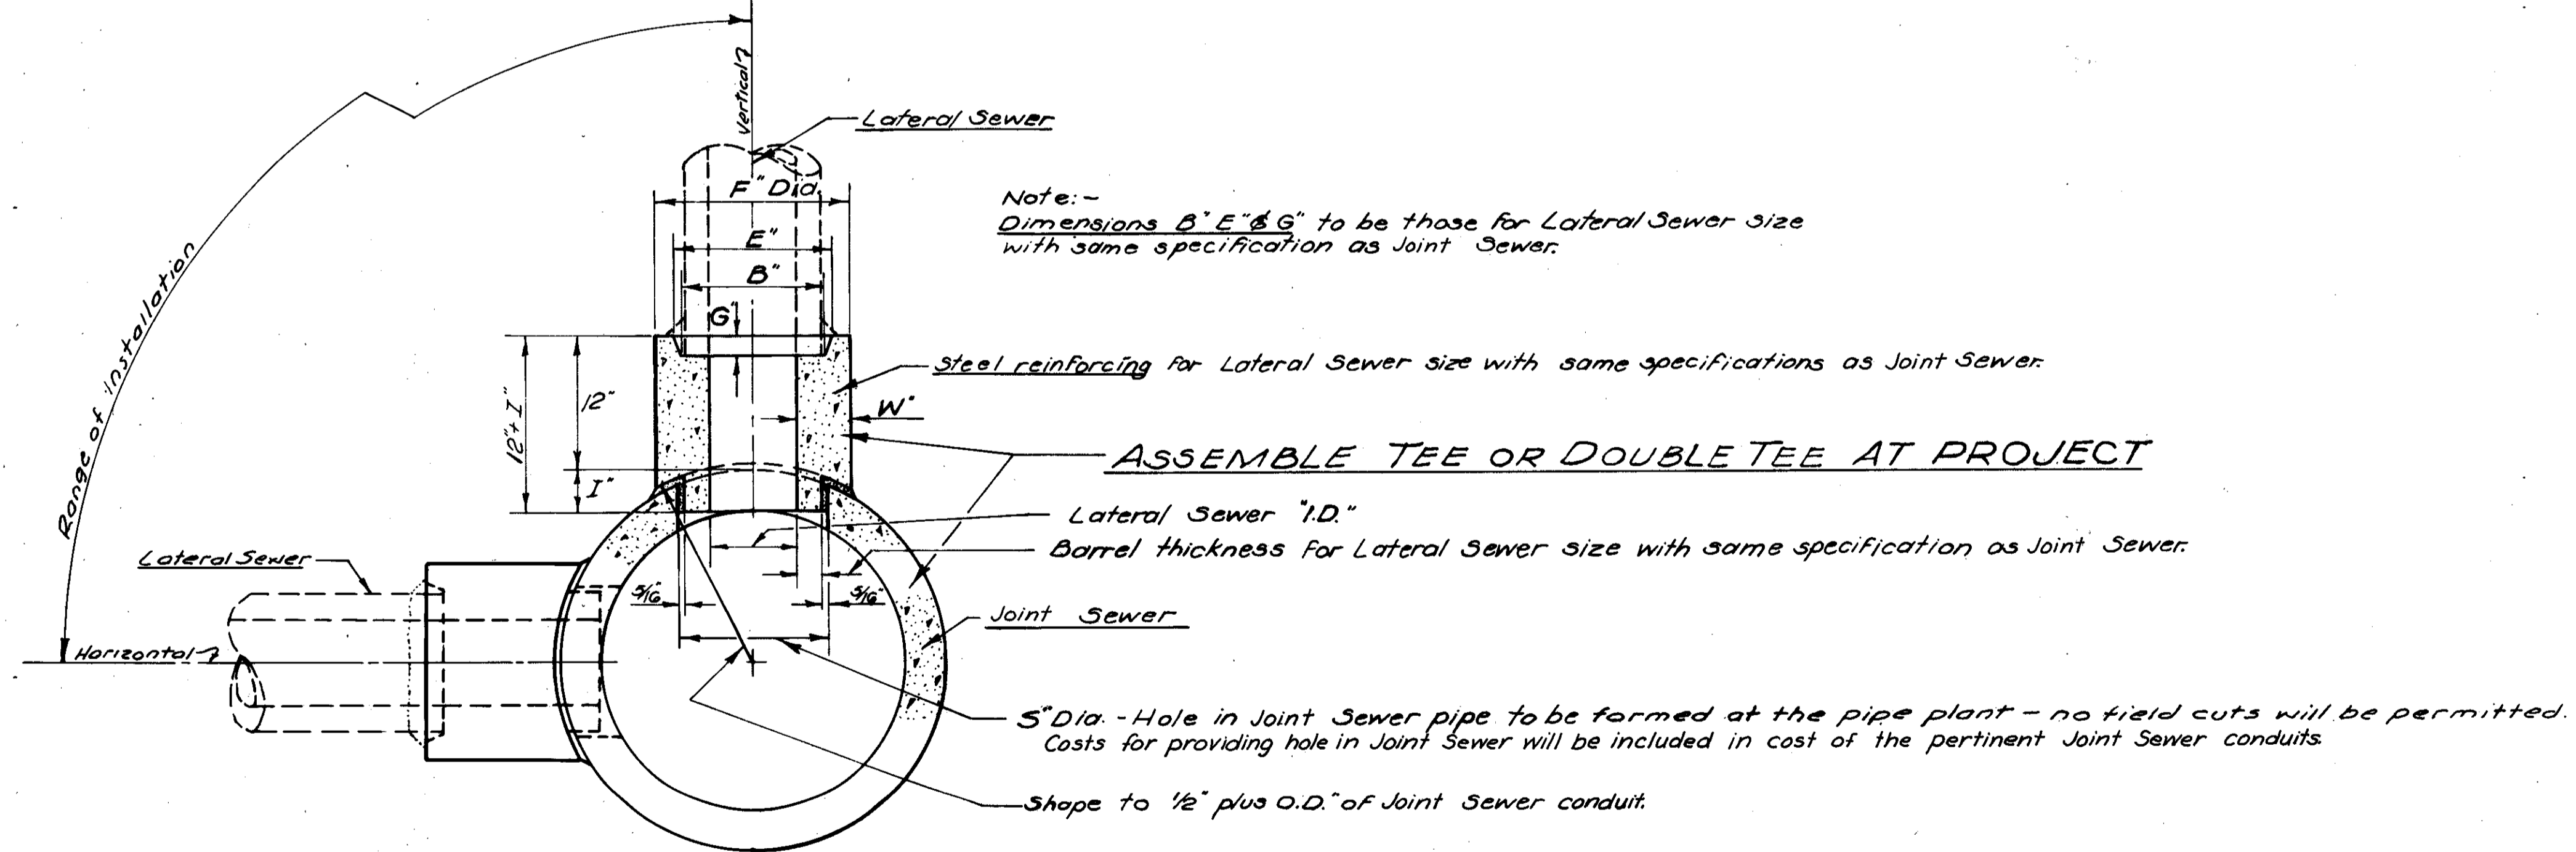 Vertical
Lateral Sewer
F" Dia.
Note:-
Dimensions B" E" & G" to be those for Lateral Sewer size
with same specification as Joint Sewer.
E"
B"
G"
Range of installation
Steel reinforcing for Lateral Sewer size with same specifications as Joint Sewer.
12"+I"
12"
W"
ASSEMBLE TEE OR DOUBLE TEE AT PROJECT
I"
Lateral Sewer "I.D."
Barrel thickness for Lateral Sewer size with same specification as Joint Sewer.
Lateral Sewer
5/16"
5/16"
Joint Sewer
Horizontal
S" Dia. - Hole in Joint Sewer pipe to be formed at the pipe plant - no field cuts will be permitted.
Costs for providing hole in Joint Sewer will be included in cost of the pertinent Joint Sewer conduits.
Shape to 1/2" plus O.D." of Joint Sewer conduit.